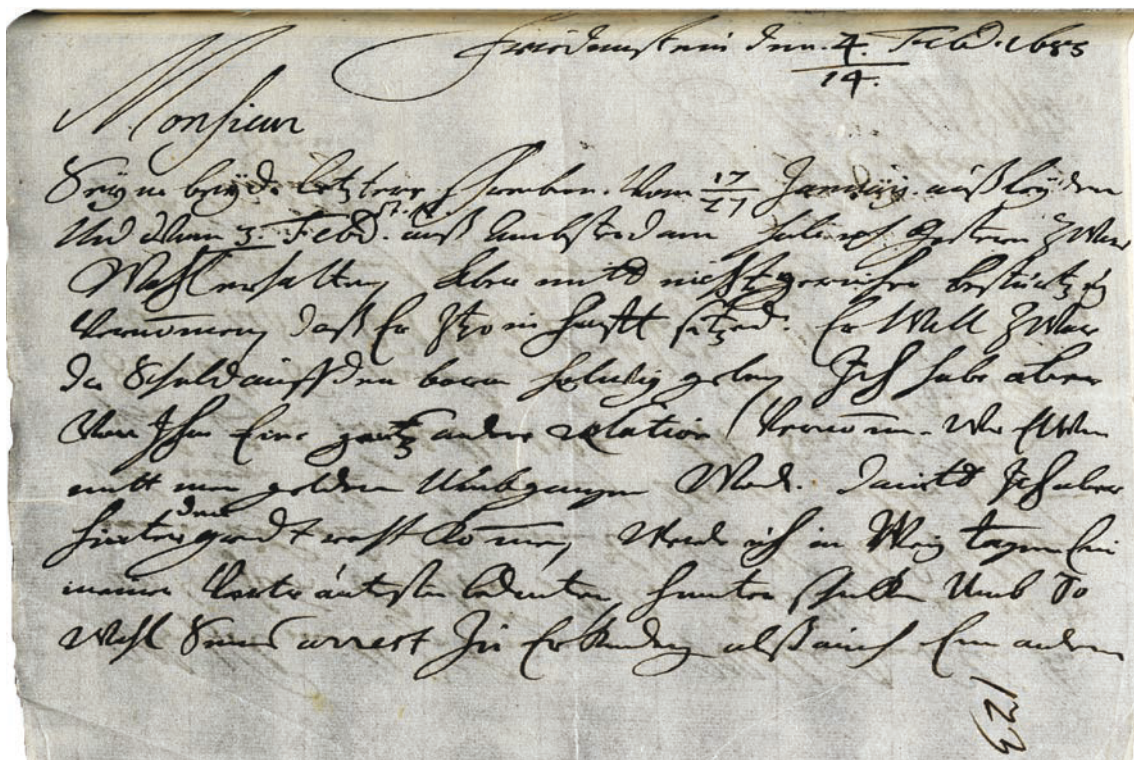 Friedenstein den 4. Febr. 1685
14.
Monsieur
Seyne beyde letztere schreiben vom 17/27 January auß leyden
Und vom 3. Febr. auß Ambsterdam habe ich gestern zwar
Wohl erhalten, Aber mitt nicht geringer bestürtzung
Vernommen, daß Er itzo in hafft sitzed. Er Will zwar
die Schuld auff den baron legen Ich habe aber
Von Ihm Eine gantz andere relation Vernom̄.
mitt gelden Umbgangen damitt Ich aber
hinter den grundt recht kom̄en, Werde ich in Wenig tagen Ein
meiner Vertrautesten bedienten schicken Umb So
Wohl Seines arrest zu Erkunden alß auch Ein andern
123